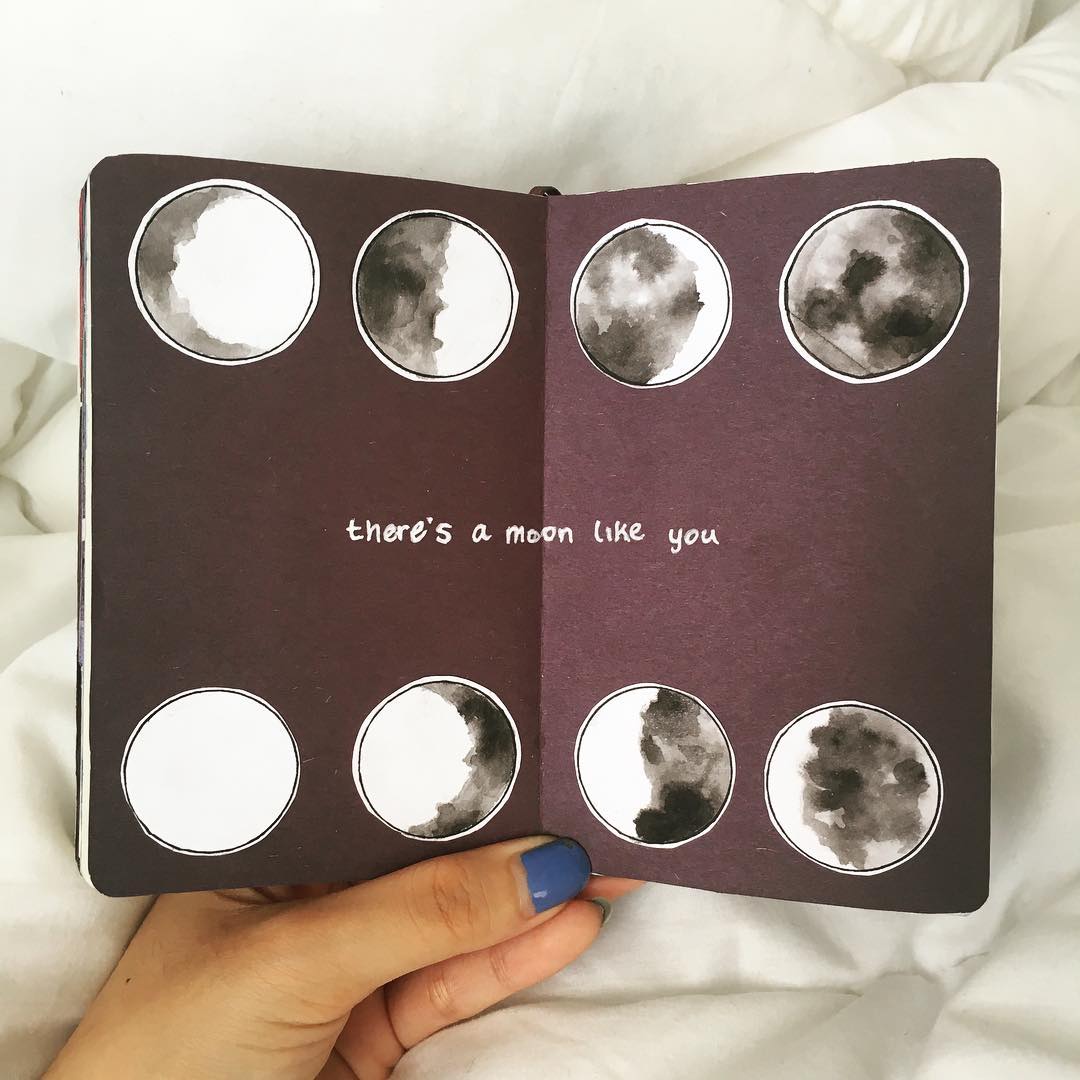 there's a moon like you